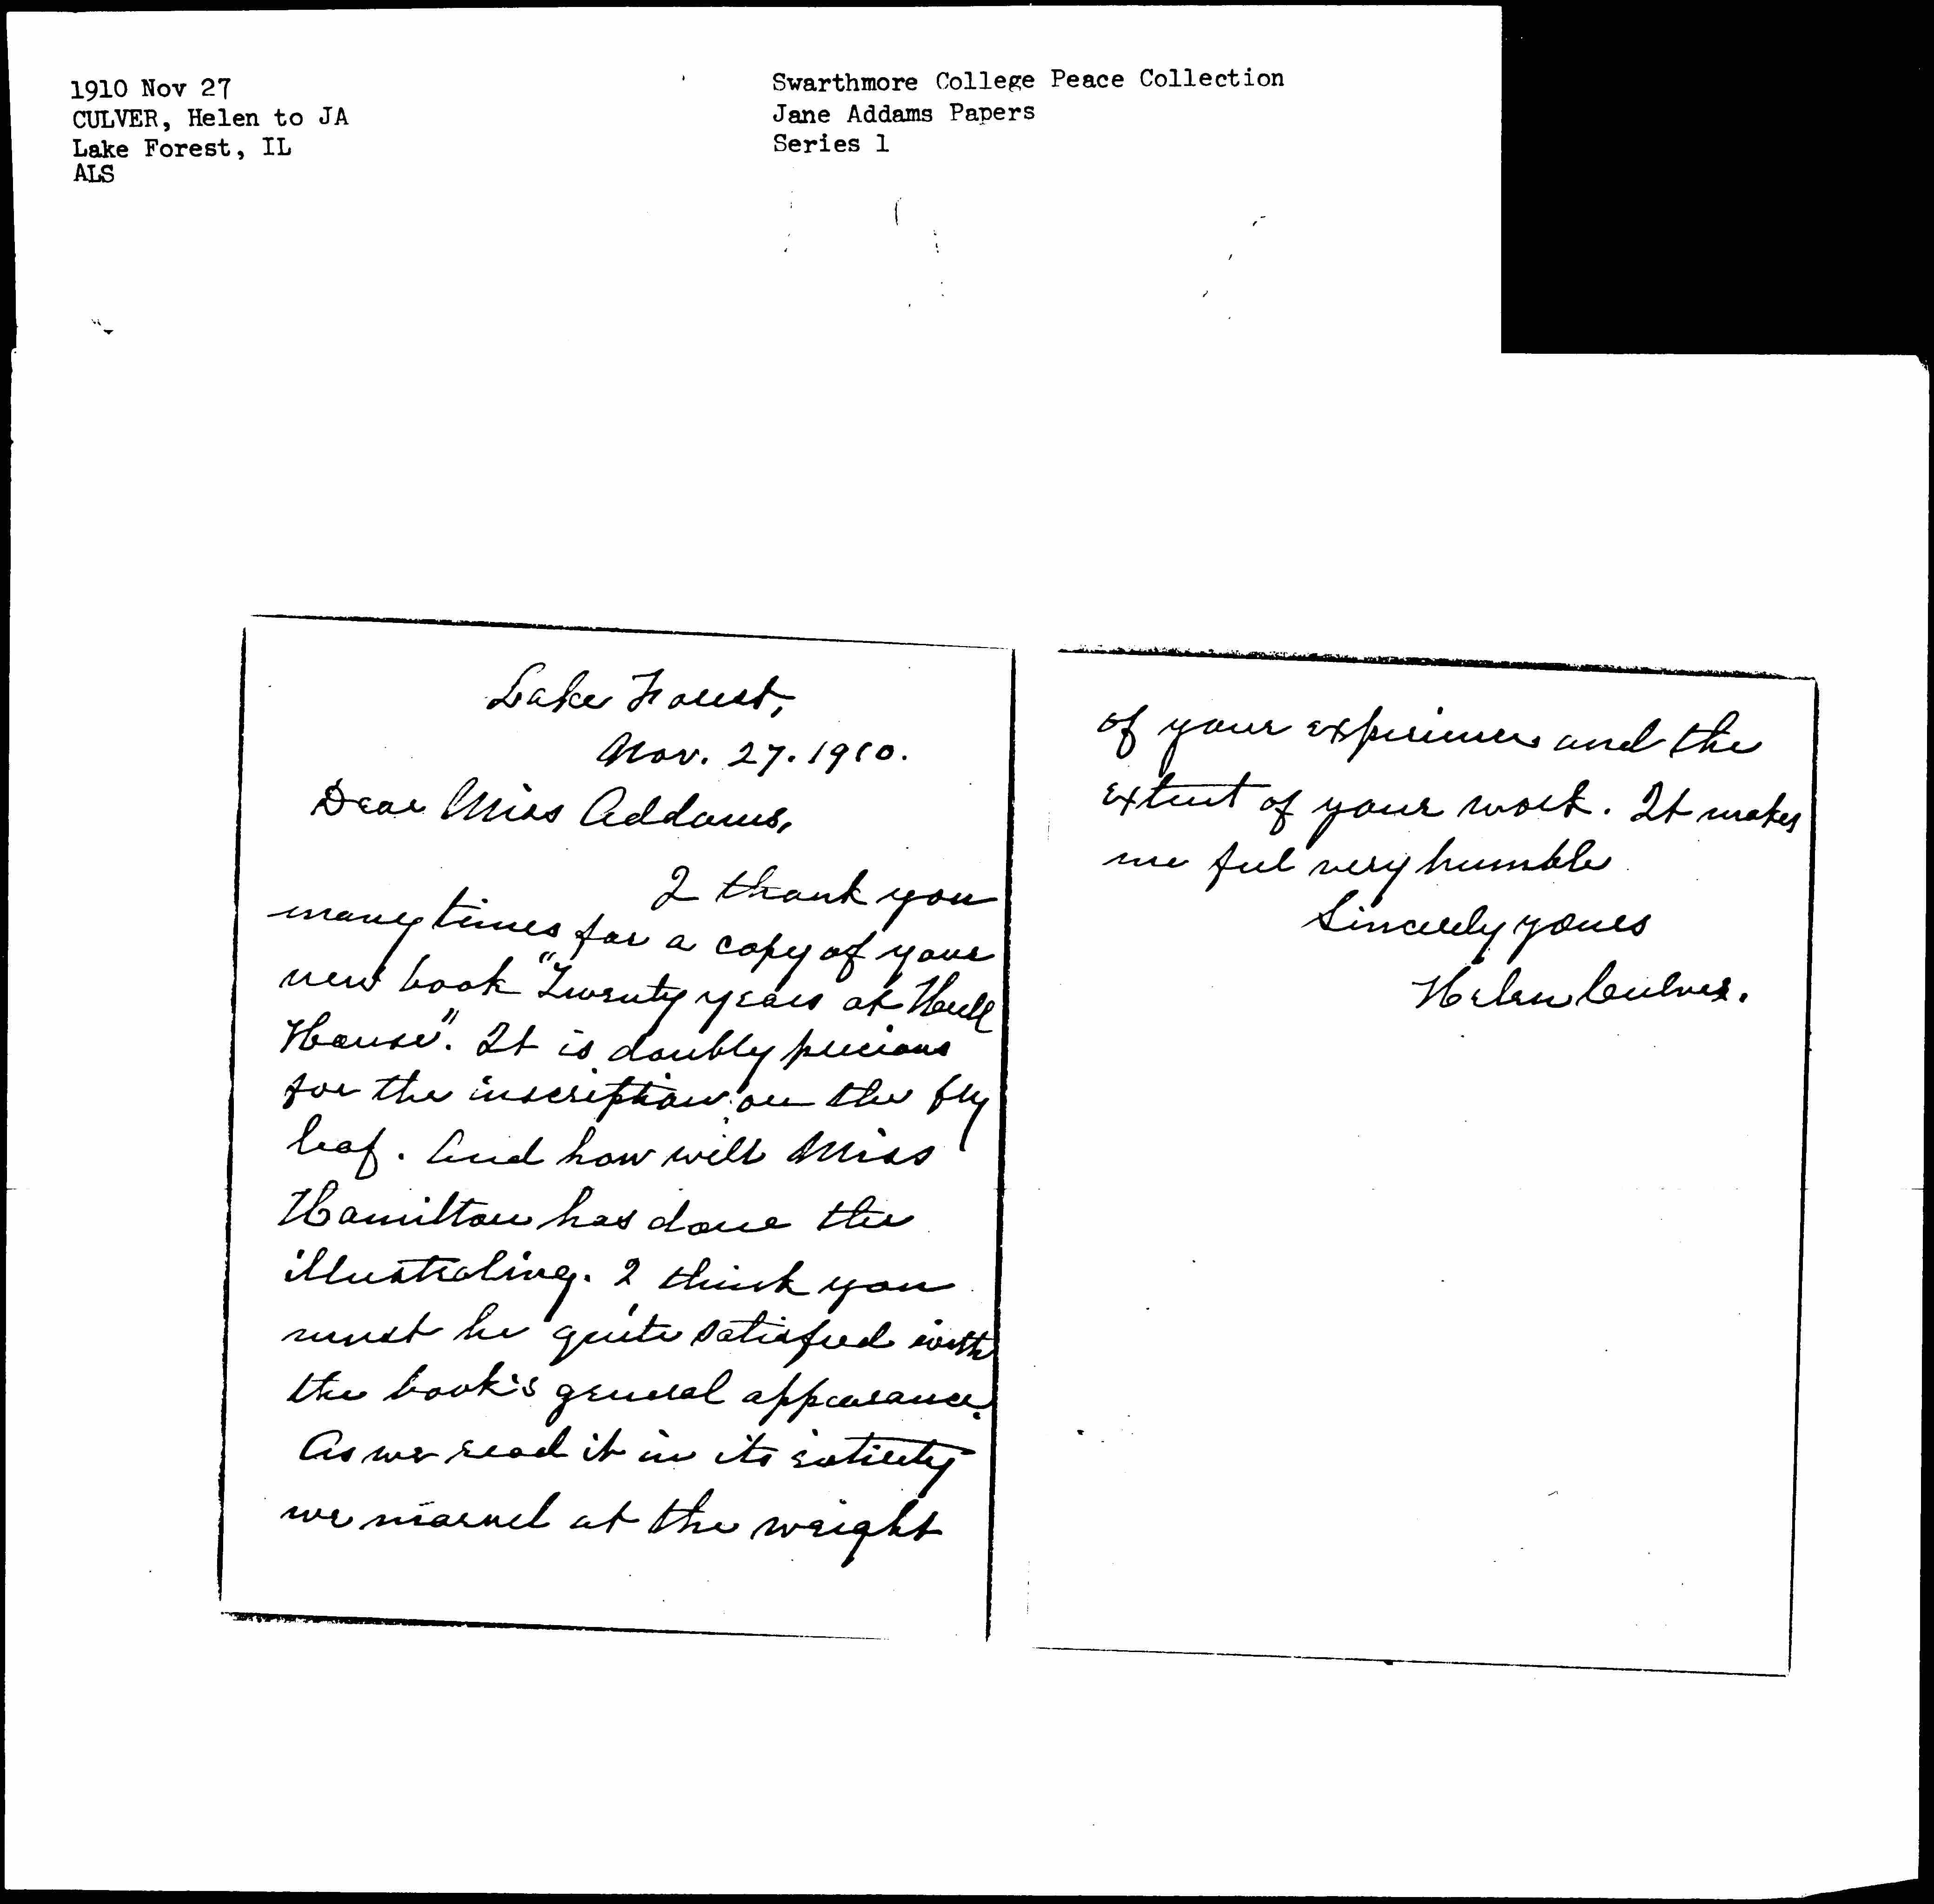 1910 Nov 27
CULVER, Helen to JA
Lake Forest, IL
ALS
Swarthmore College Peace Collection
Jane Addams Papers
Series 1
Lake Forest,
Nov. 27. 1910.
Dear Miss Addams,
I thank you
many times for a copy of your
new book "Twenty years at Hull
House". It is doubly precious
for the inscription on the fly
leaf. And how well Miss
Hamilton has done the
illustrating. I think you
must be quite satisfied with
the book's general appearance.
As we read it in its entirety
we marvel at the weight
of your experiences and the
extent of your work. It makes
me feel very humble
Sincerely yours
Helen Culver.